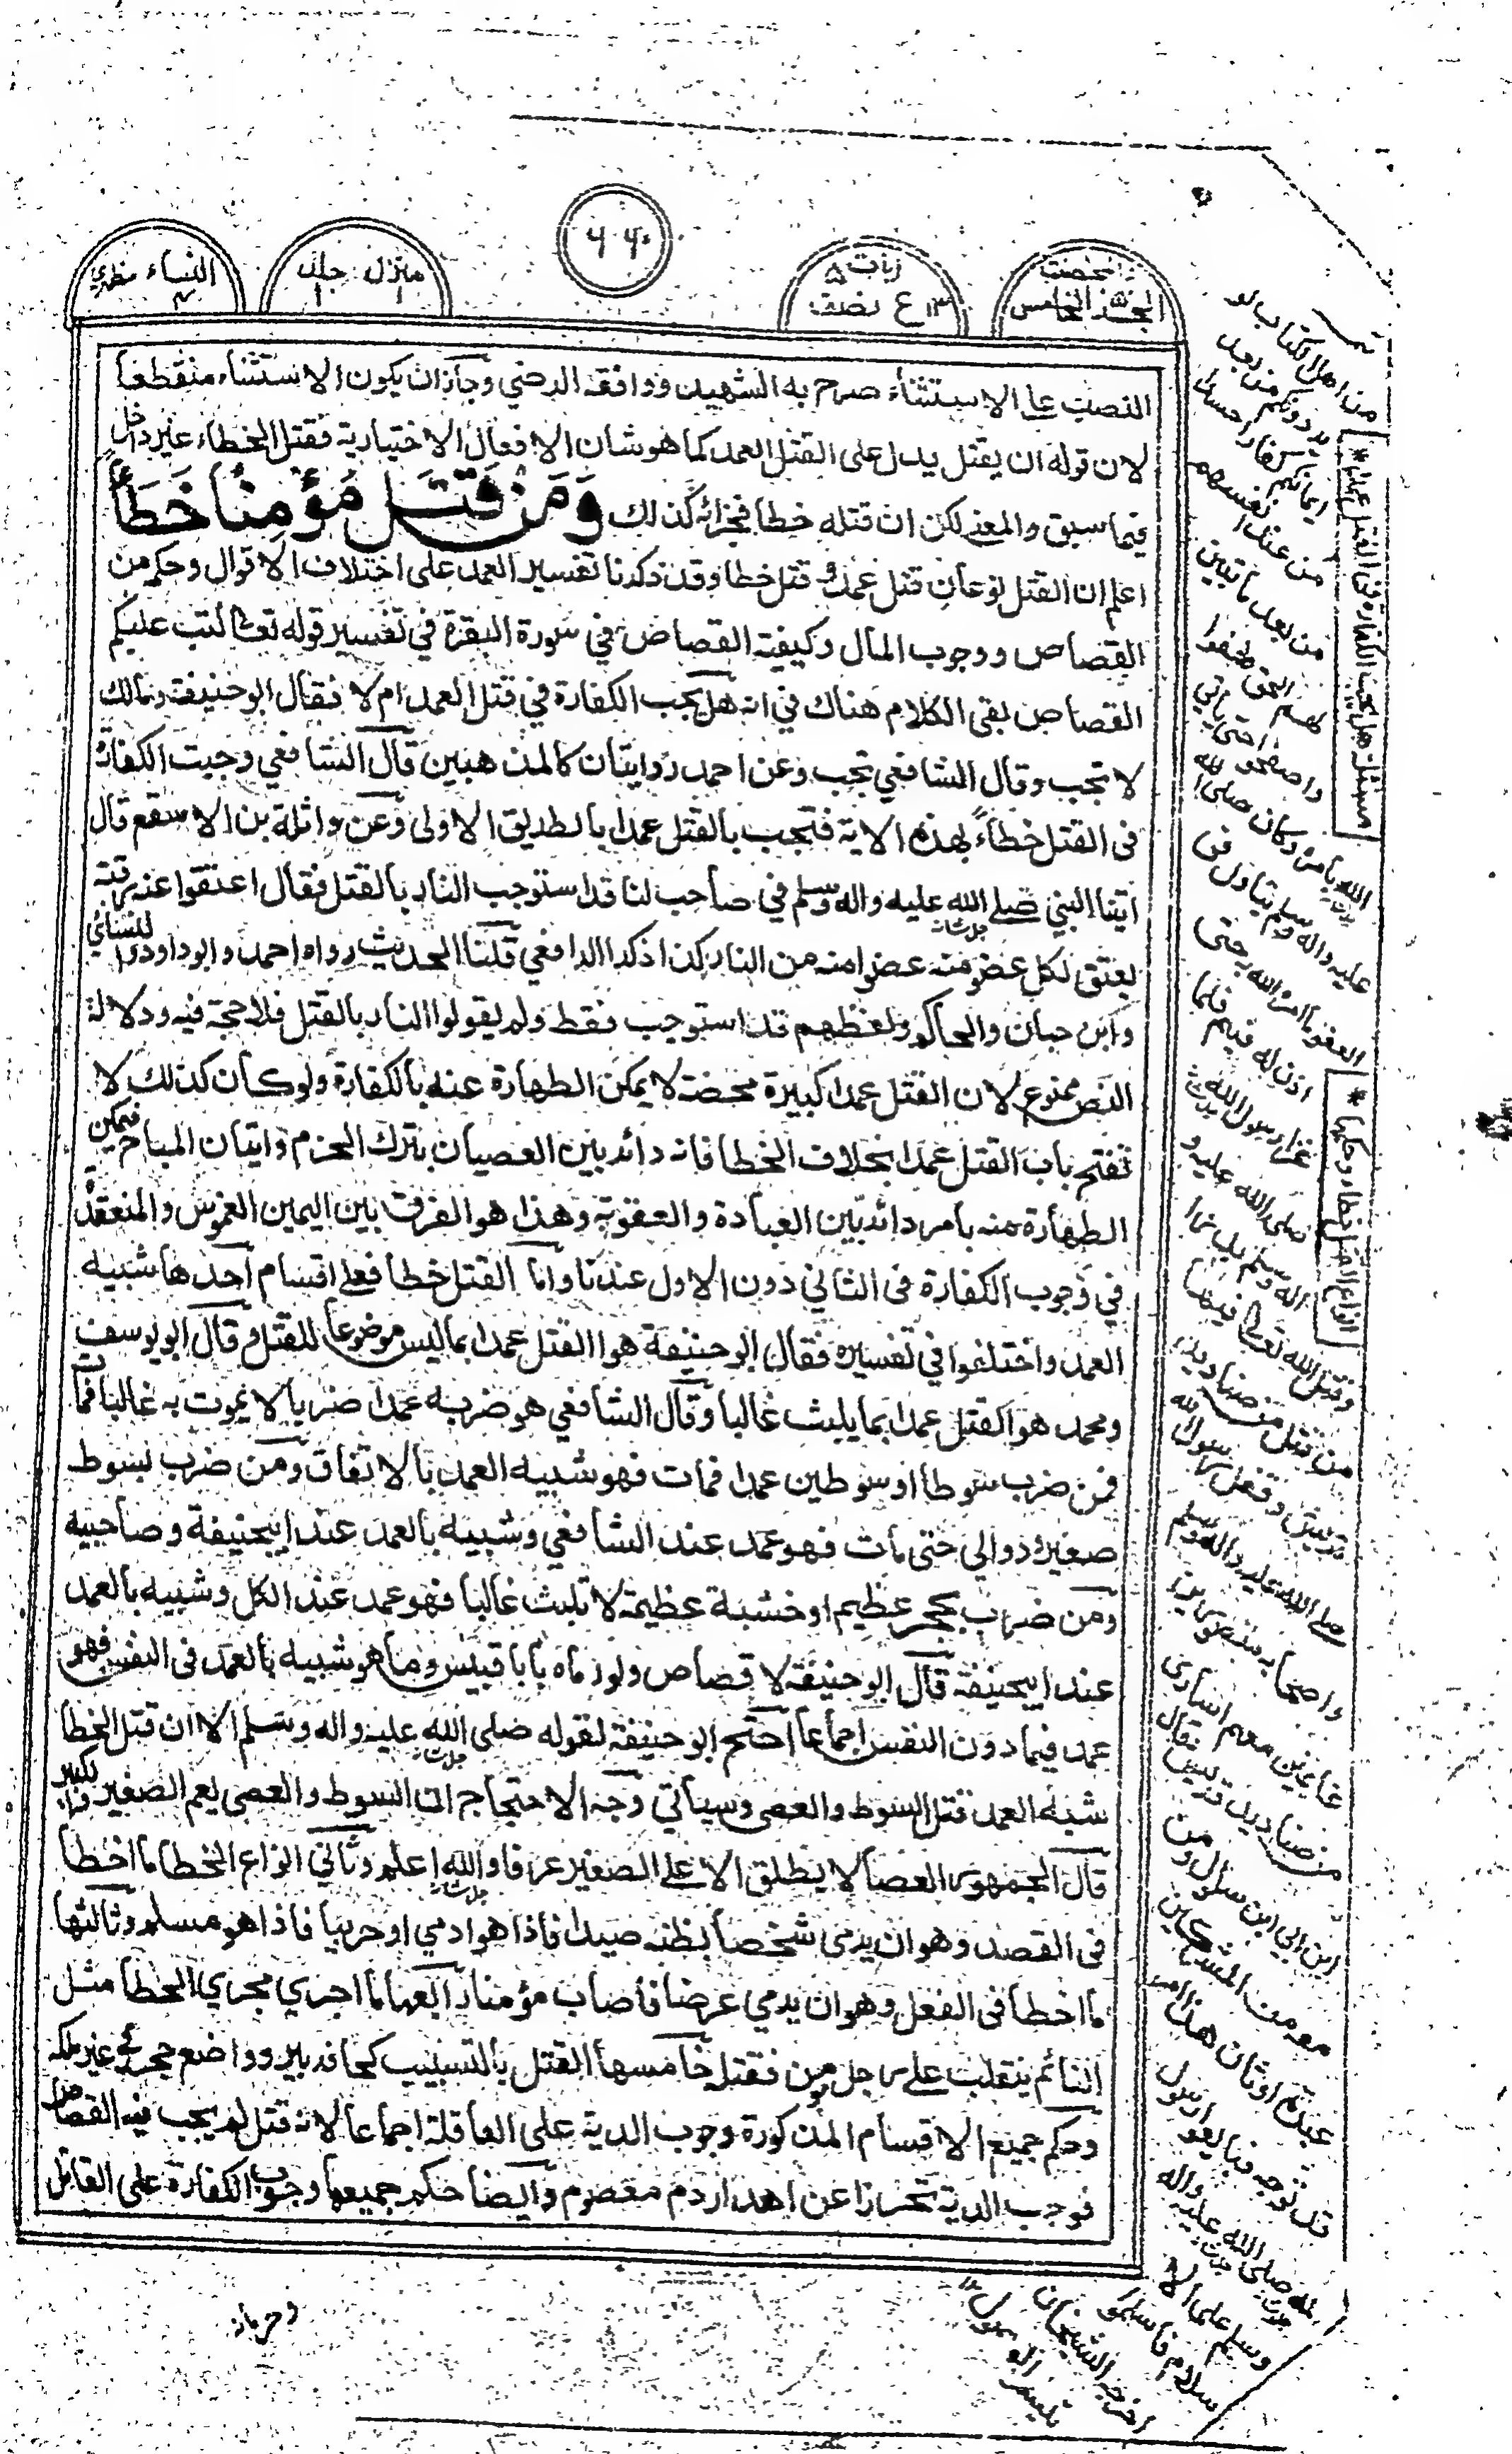 النساء مظهري
٤
منزل جلد
١ ١
٦٠٢
زبات ٥
١٣ ع نصف
المحصنت
الجزء الخامس
النصب على الاستثناء صرح به الشهين ووافقه الرضي وجاز ان يكون الاستثناء منقطعا
لان قوله ان يقتل يدل على القتل العمد كما هو شان الافعال الاختيارية فقتل الخطاء غير داخل
فيما سبق والمعنى لكن ان قتله خطا فجزاؤه كذلك وَمَنْ قَتَلَ مُؤْمِنًا خَطَأً
اعلم ان القتل نوعان قتل عمد و قتل خطا وقد ذكرنا تفسير العمد على اختلاف الاقوال وحكمه من
القصاص ووجوب المال وكيفية القصاص في سورة البقرة في تفسير قوله تعالى كتب عليكم
القصاص بقى الكلام هناك في انه هل يجب الكفارة في قتل العمد ام لا فقال ابو حنيفة ومالك
لا تجب وقال الشافعي تجب وعن احمد روايتان كالمذهبين قال الشافعي وجبت الكفارة
فى القتل خطاءً بهذه الاية فتجب بالقتل عمدا بالطريق الاولى وعن واثلة بن الاسقع قال
اتينا النبي صلى الله عليه واله وسلم في صاحب لنا قد استوجب النار بالقتل فقال اعتقوا عنه رقبة
يعتق لكل عضو منه عضوا منه من النار كذا ذكر الرافعي قلنا الحديث رواه احمد وابو داود والنسائي
وابن حبان والحاكم ولفظهم قد استوجب فقط ولم يقولوا النار بالقتل فلا حجة فيه ودلالة
النص ممنوع لان القتل عمدا كبيرة محضة لا يمكن الطهارة عنه بالكفارة ولو كان كذلك لا
نفتح باب القتل عمدا بخلاف الخطا فانه دائر بين العصيان بترك الحزم واتيان المباح فيمكن
الطهارة منه بامر دائر بين العبادة والعقوبة وهذا هو الفرق بين اليمين الغموس والمنعقدة
في وجوب الكفارة فى الثاني دون الاول عندنا واما القتل خطأ فعلى اقسام احدها شبيه
العمد واختلفوا في تفسيره فقال ابو حنيفة هو القتل عمدا بما ليس موضوعا للقتل وقال ابو يوسف
ومحمد هو القتل عمدا بما يلبث غالبا وقال الشافعي هو ضربه عمدا ضربا لا يموت به غالبا فمات
فمن ضرب سوطا او سوطين عمدا فمات فهو شبيه العمد بالاتفاق ومن ضرب بسوط
صغير ووالى حتى مات فهو عمد عند الشافعي وشبيه بالعمد عند ابيحنيفة وصاحبيه
ومن ضرب بحجر عظيم او خشبة عظيمة لا تلبث غالبا فهو عمد عند الكل وشبيه بالعمد
عند ابيحنيفة قال ابو حنيفة لا قصاص ولو رماه بابا قبيس وما هو شبيه بالعمد فى النفس فهو
عمد فيما دون النفس اجماعا احتج ابو حنيفة لقوله صلى الله عليه واله وسلم الا ان قتل الخطا
شبه العمد قتل السوط والعصى وسيأتي وجه الاحتجاج ان السوط والعصى يعم الصغير والكبير
قال الجمهور العصا لا يطلق الا على الصغير عرفا والله اعلم وثاني انواع الخطا ما اخطا
فى القصد وهو ان يرمى شخصا يظنه صيدا فاذا هو ادمي او حربيا فاذا هو مسلم وثالثها
ما اخطا فى الفعل وهو ان يرمي غرضا فاصاب مؤمنا رابعها ما اجري مجري الخطا مثل
النائم ينقلب على رجل مومن فقتله خامسها القتل بالتسبيب كحافر بير وواضع حجر في غير ملكه
وحكم جميع الاقسام المذكورة وجوب الدية على العاقلة اجماعا لانه قتل لم يجب فيه القصاص
فوجب الدية تحرزا عن اهدار دم معصوم وايضا حكم جميعها وجوب الكفارة على القاتل
وحرمان
مسئلة هل يجب الكفارة فى القتل عمدا *
انواع القتل خطاء وحكمها *
من اهل الكتاب لو
يردونكم من بعد
ايمانكم كفارا حسدا
من عند انفسهم
من بعد ما تبين
لهم الحق فاعفوا
واصفحوا حتى ياتي
الله بامره وكان صلى الله
عليه واله وسلم يتاول فى
العفو ما امره الله به حتى
اذن له فيهم فلما
غزا رسول الله
صلى الله عليه و
اله وسلم بدرا
وقتل الله تعالى فيها
من قتل من صناديد
قريش وقفل رسول الله
صلى الله عليه واله وسلم
واصحابه منصورين
غانمين معهم اسارى
من صناديد قريش قال
ابن ابي ابن سلول ومن
معه من المشركين
عبدة اوثان هذا امر
قد توجه فبايعوا رسول
الله صلى الله عليه واله
وسلم على الا
سلام فاسلموا
اخرجه الشيخان